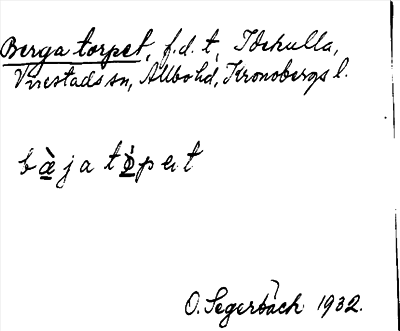 Berga torpet, f.d. t, Idekulla,
Virestads sn, Allbo hd, Kronobergs l.
bæ̀ja tɵ̀pet
O. Segerbäck 1932.